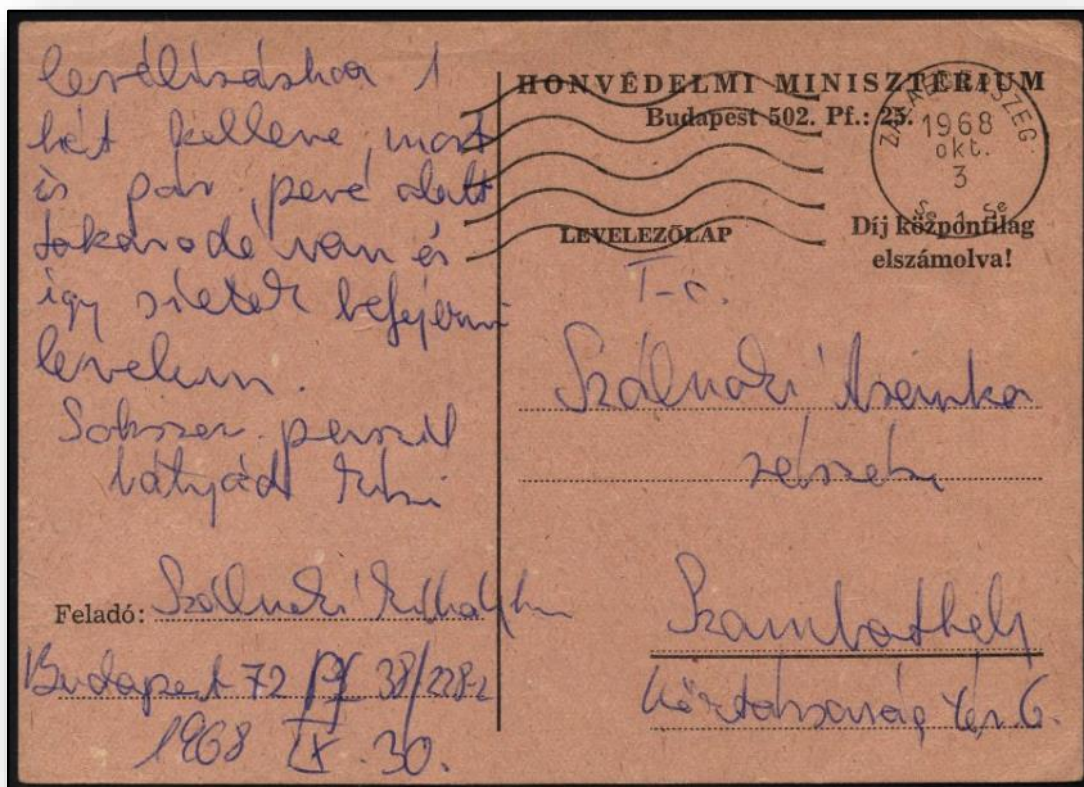 levélíráshoz 1
hét kellene, most
is pár perc alatt
takarodó van és
így sietek befejezni
levelem.
Sokszor puszil
bátyád Misi
Feladó: Szálnoki Mihály hv
Budapest 72 pf 38/228-2
1968 IX. 30.
HONVÉDELMI MINISZTÉRIUM
Budapest 502. Pf.: 25.
ZALAEGERSZEG
1968
okt.
3
1
LEVELEZŐLAP
Díj központilag
elszámolva!
részére
Szombathely
Köztársaság tér 6.